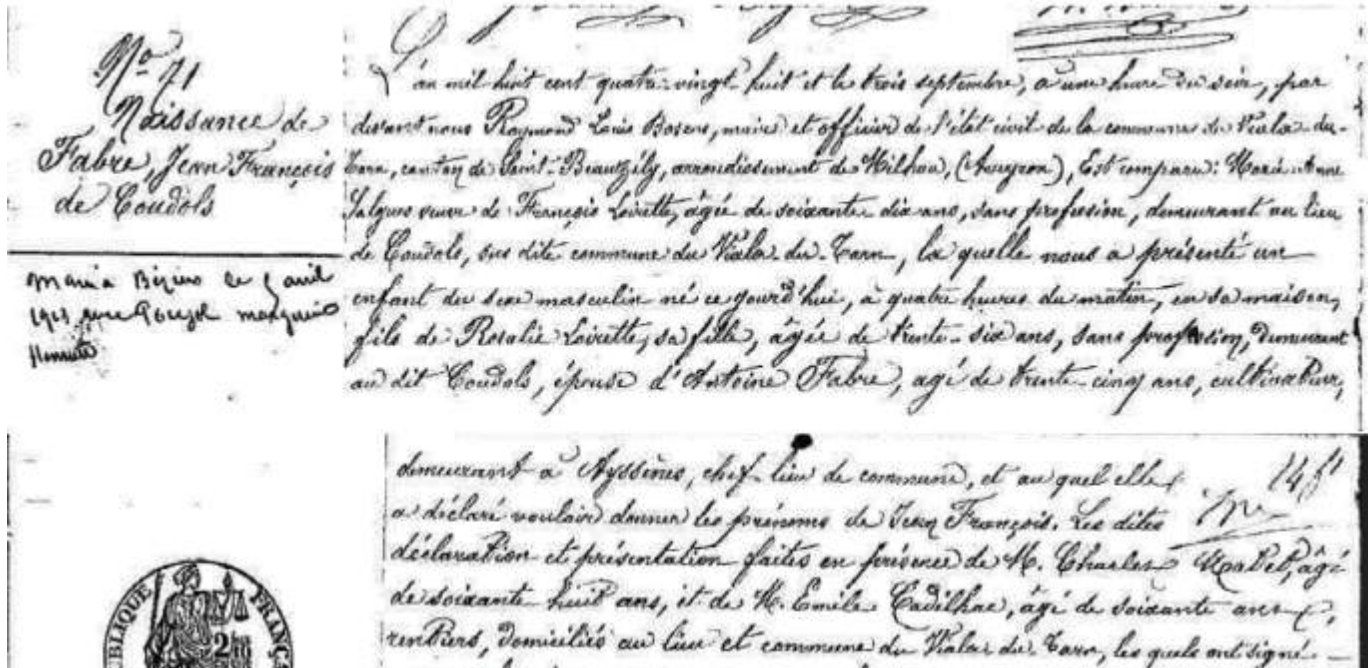 No 71
Naissance de
Fabre, Jean François
de Coudols
Marié à Béziers le 5 avril
avec
L'an mil huit cent quatre-vingt huit et le trois septembre, à une heure du soir, par
devant nous Raymond Louis Bosens, maire et officier de l'état civil de la commune de Viala-du-
Tarn, canton de Saint-Beauzély, arrondissement de Milhau, (Aveyron), Est comparu: Marie-Anne
Salgues veuve de François Loirette, âgée de soixante dix ans, sans profession, demeurant au lieu
de Coudols, sus dite commune du Viala-du-Tarn, la quelle nous a présenté un
enfant du sexe masculin né ce jourd'hui, à quatre heures du matin, en sa maison,
fils de Rosalie Loirette, sa fille, âgée de trente-six ans, sans profession, demeurant
au dit Coudols, épouse d'Antoine Fabre, agé de trente-cinq ans, cultivateur,
demeurant à Ayssènes, chef-lieu de commune, et au quel elle
a déclaré vouloir donner les prénoms de Jean François. Les dites
déclaration et présentation faites en présence de M. Charles Rabel, âgé
de soixante huit ans, et de M. Emile Cadilhac, âgé de soixante ans,
rentiers, domiciliés au lieu et commune du Viala du Tarn, les quels ont signé
RÉPUBLIQUE FRANÇAISE